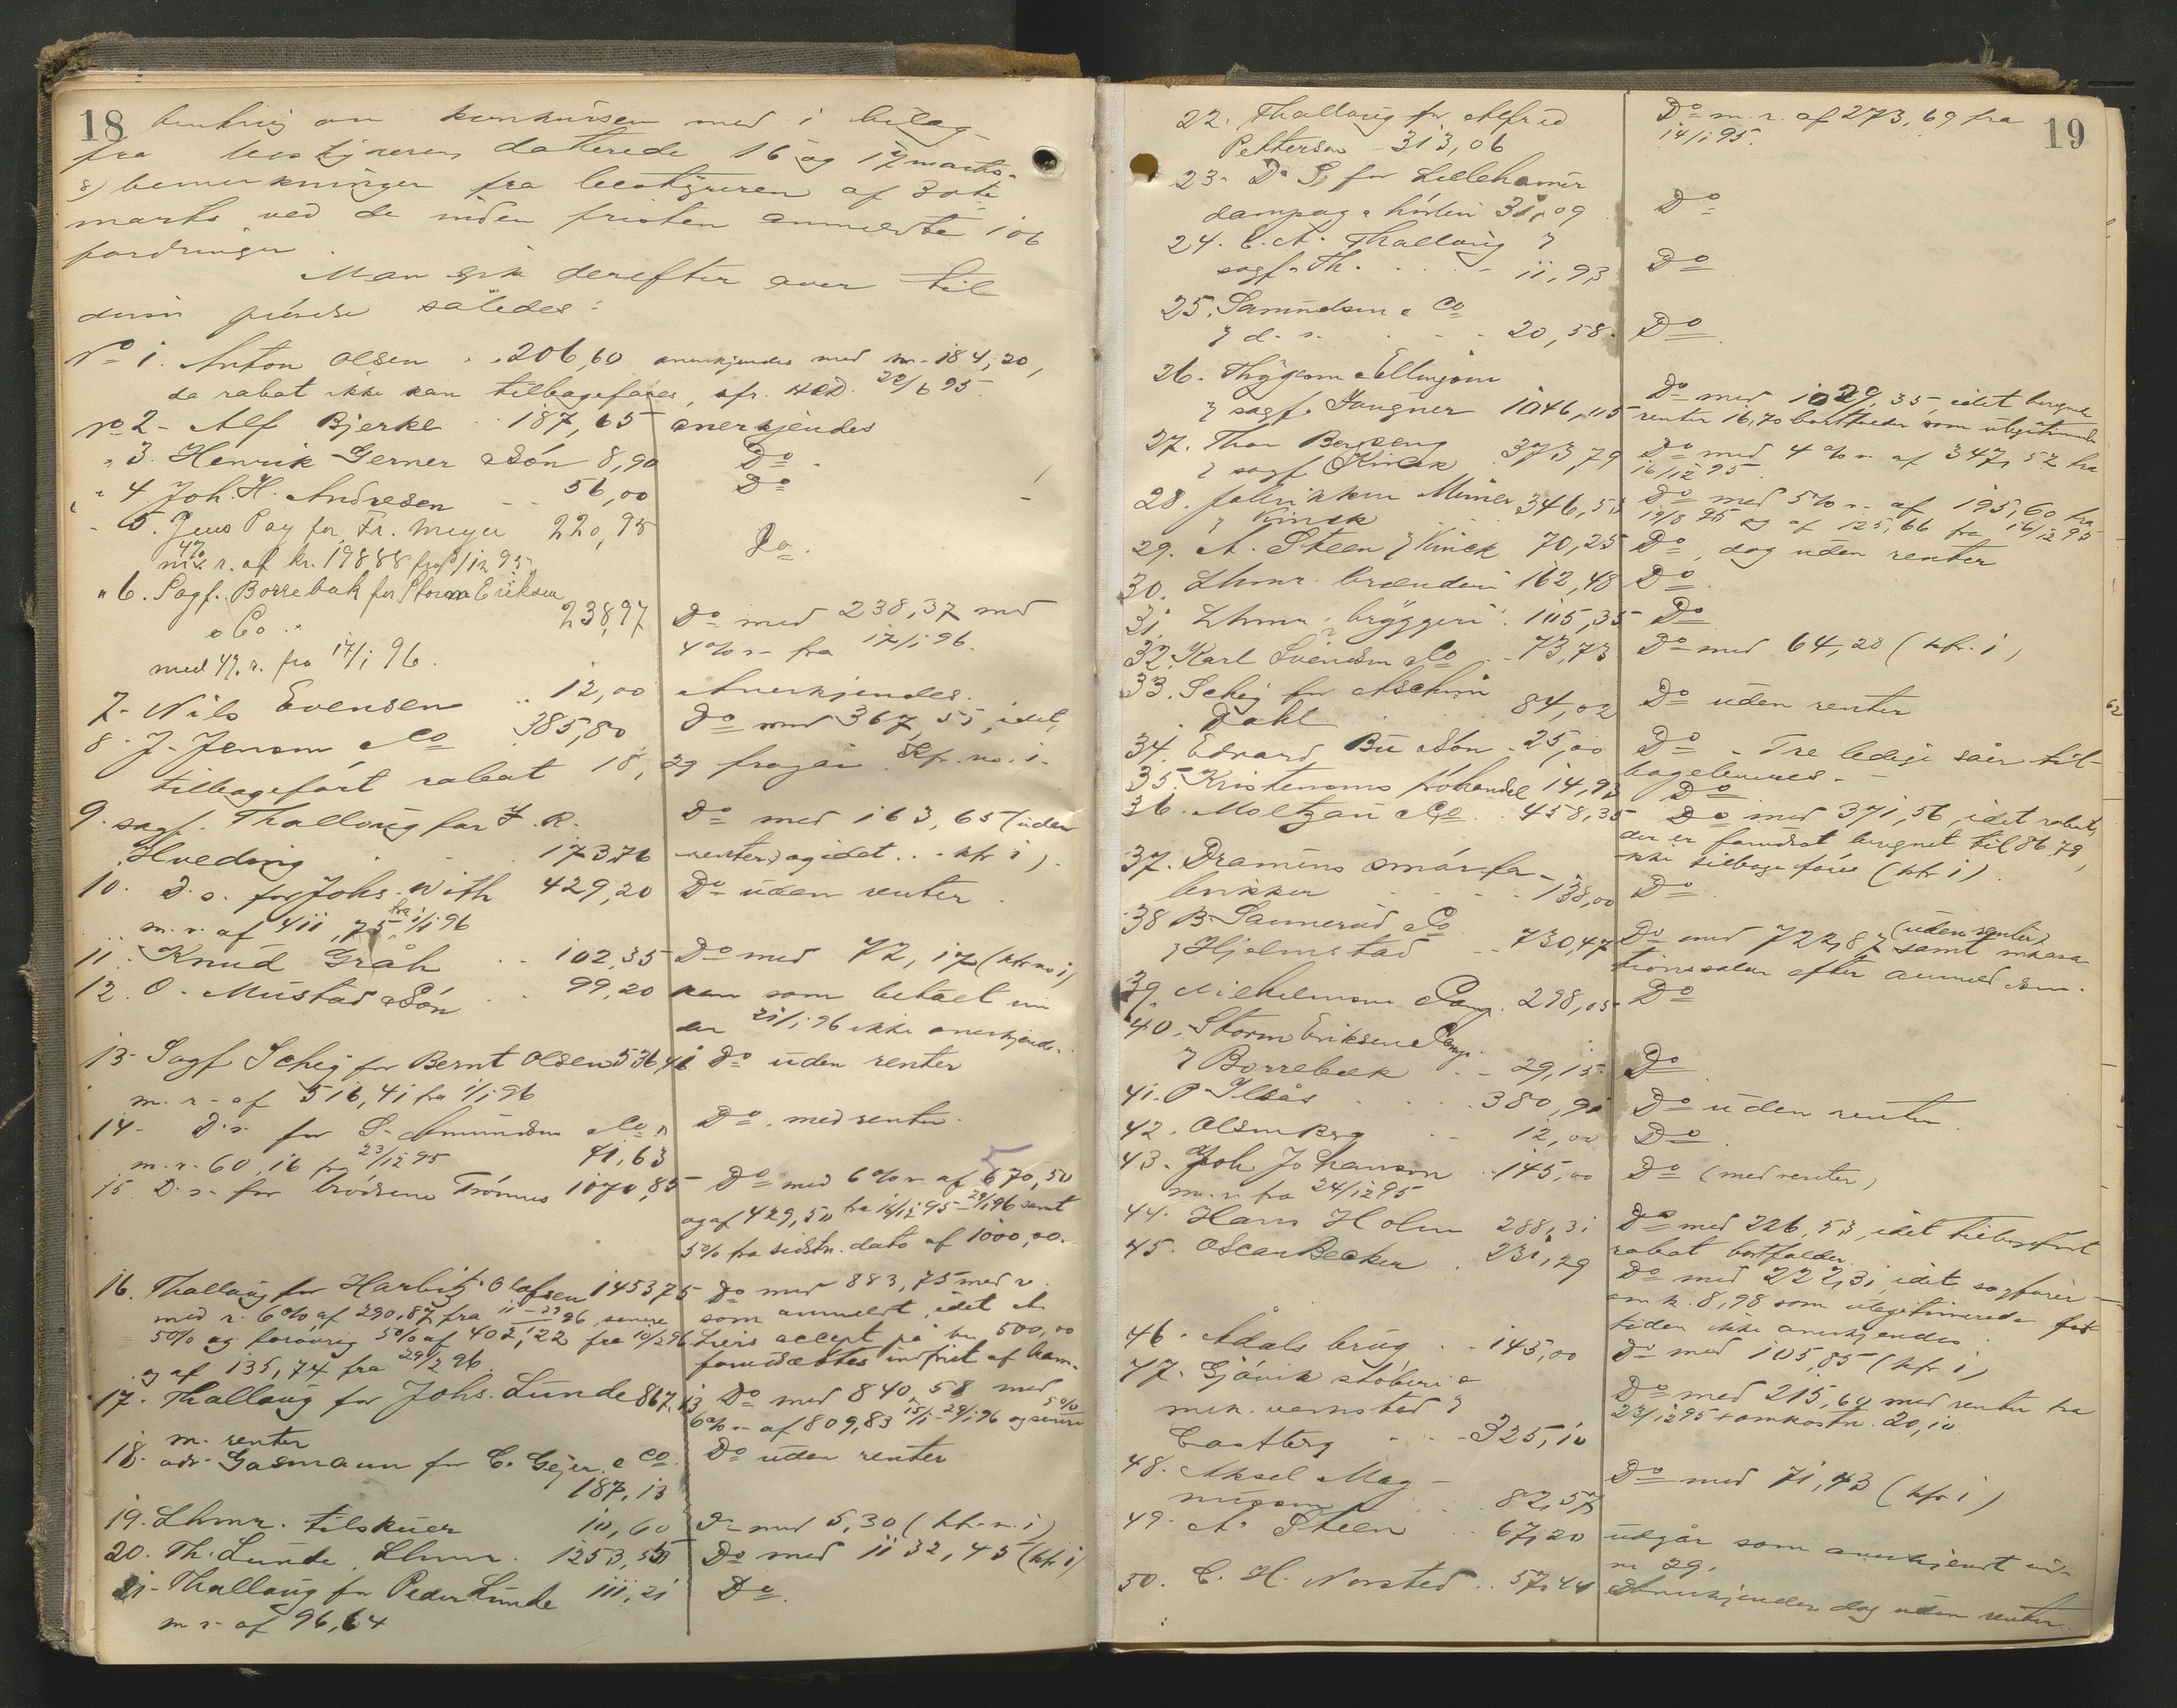 18
konkursen med i bilag
fra bestyreren daterede 16 og 17 marts.
8) bemerkninger fra bestyreren af 30te
marts ved de inden fristen anmeldte 106
fordringer.
Man gik derefter over til
disses prøvelse således:
No 1. Anton Olsen .. 206,60 anerkjendes med kr. 184,20,
da rabat ikke kan tilbageføres, cfr. HRD. 22/6 95.
No 2 - Alf Bjerke .. 187,65 anerkjendes
" 3. Henrik Gerner & Søn 8,90 Do.
" 4. Joh. H. Andresen - - 56,00 Do
" 5. Jens Pay for Fr. Meyer 220,95 Do.
4% r. af kr. 198 88 fra /12 95
" 6. Sagf. Borrebæk for Storm Eriksen
& Co .. 238,97 Do med 238,37 med
med 4% r. fra 17/1 96. 4% r. fra 17/1 96.
7. Nils Evensen .. 12,00 Anerkjendes.
8. J. Jenson & Co 385,80 Do med 367,55, idet
tilbageført rabat 18,29 fragår. Kfr. no. 1.
9. sagf. Thallaug for F. R.
Hveding . . . 173,76 Do med 163,65 (uden
renter) og idet .. kfr 1).
10. D. s. for Johs. With 429,20 Do uden renter.
m. r. af 411,75 fra 1/1 96
11. Knud Gråh .. 102,35 Do med 72,17 (kfr no 1)
12. O. Mustad & Søn .. 99,20 kan som betalt
den 21/1 96 ikke anerkjendes.
13. Sagf Scheig for Bernt Olsen 536,41 Do uden renter
m. r. af 516,41 fra 1/1 96
14. D. s. for S. Amundsen & Co Do. med renter.
m. r. 60,16 fra 23/12 95 71,63
15. D. s. for brødrene Trømnes 1070,85 Do med 6% r. af 670,50
og af 429,50 fra 16/12 95 - 29/1 96 samt
5% fra sidstn. dato af 1000,00.
16. Thallaug for Harbitz Olafsen 1453 75 Do med 883,75 med r.
med r. 6% af 290,87 fra 11 - 29 96, senere som anmeldt, idet A.
5% og forøvrig 5% af 402,22 fra 10/2 96 Liers accept på kr. 500,00
og af 135,74 fra 29/2 96 forudsættes indfriet af ham.
17. Thallaug for Johs. Lunde 867,13 Do med 840,58 med
m. renter 6% r. af 809,83 15/1 - 29/1 96 og senere 5%
18. adv. Gasmann for C. Gejer & Co. Do uden renter
187,13
19. Lhmr. tilskuer 10,60 Do med 5,30 (kfr. n. 1)
20. Th. Lunde Lhmr. 1253,50 Do med 1132,45 (kfr 1)
21. Thallaug for Peder Lunde 111,21 Do.
m r. af 96,64
19
22. Thallaug for Alfred Do m. r. af 273,69 fra
Petterson - 313,06 14/1 95.
23. D. S. for Lillehamer
dampsag & høvleri 31,09 Do
24. C. A. Thallaug
sagf. Th. . . . - 11,93 Do
25. Samuelsen & Co
d. s. . . - 20,58. Do
26. Thygeson & Ellingsen Do med 1029,35, idet beregnede
sagf. Gaugner 1046,05 renter 16,70 bortfalder som ulegitimerede
27. Thor Bergseng
sagf Kinck 373,79 Do med 4% r. af 347,52 fra
16/12 95
28. fabrikken Minier 346,53 Do med 5% r. af 195,60 fra
Kinck 19/8 95 og af 125,66 fra 16/12 95
29. A. Steen Kinck 70,25 Do, dog uden renter
30. Lhmr. brænderi 162,48 Do.
31. Lhmr. bryggeri 105,35 Do
32. Karl Svendsen & Co .. 73,73 Do med 64,28 (kfr. 1)
33. Scheig for Aschim
Dahl 84,02 Do uden renter
34. Edvard Bu & Søn - 25,00 Do - Tre ledige såer til-
bageleveres.
35. Kristensens frøhandel 14,93 Do
36. Moltzau & Co .. 458,35 Do med 371,56, idet rabat,
der er forudsat beregnet til 86,79,
ikke tilbage føres (kfr 1).
37. Dramens smørfa-
brikker - 138,00 Do.
38 B. Sannerud & Co.
Hjelmstad .. 730,47 Do med 722,87 (uden renter) samt inkassa-
tionssalær efter anmeldelsen.
39. Wilhelmsen Comp. 298,05 Do
40. Storm Eriksen & Comp.
Borrebæk .. 29,15. Do
41. P. Ilsås . . . 380,91 Do uden renter.
42. Olsen Berg .. 12,00 Do.
43. Joh Johanson .. 145,00 Do (med renter)
m. r. fra 24/12 95
44. Hans Holm 288,31 Do med 226,53, idet tilbageført
rabat bortfalder.
45. Oscar Becker . 231,29 Do med 222,31, idet sagfører-
om k. 8,98 som ulegitimerede
tiden ikke anerkjendes.
46. Ådals brug .. 145,00 Do med 105,85 (kfr 1)
47. Gjøvik støberi &
mek. verksted Do med 215,60 med renter fra
Castberg - - - 325,10 23/12 95 + omkostn. 20,10
48. Aksel Mag-
nuson . . . 82,57 Do med 71,43 (kfr 1)
49. A. Steen .. 67,20 udgår som anerkjendt
nr 29.
50. C. H. Norsted .. 57,44 Anerkjendes dog uden renter.